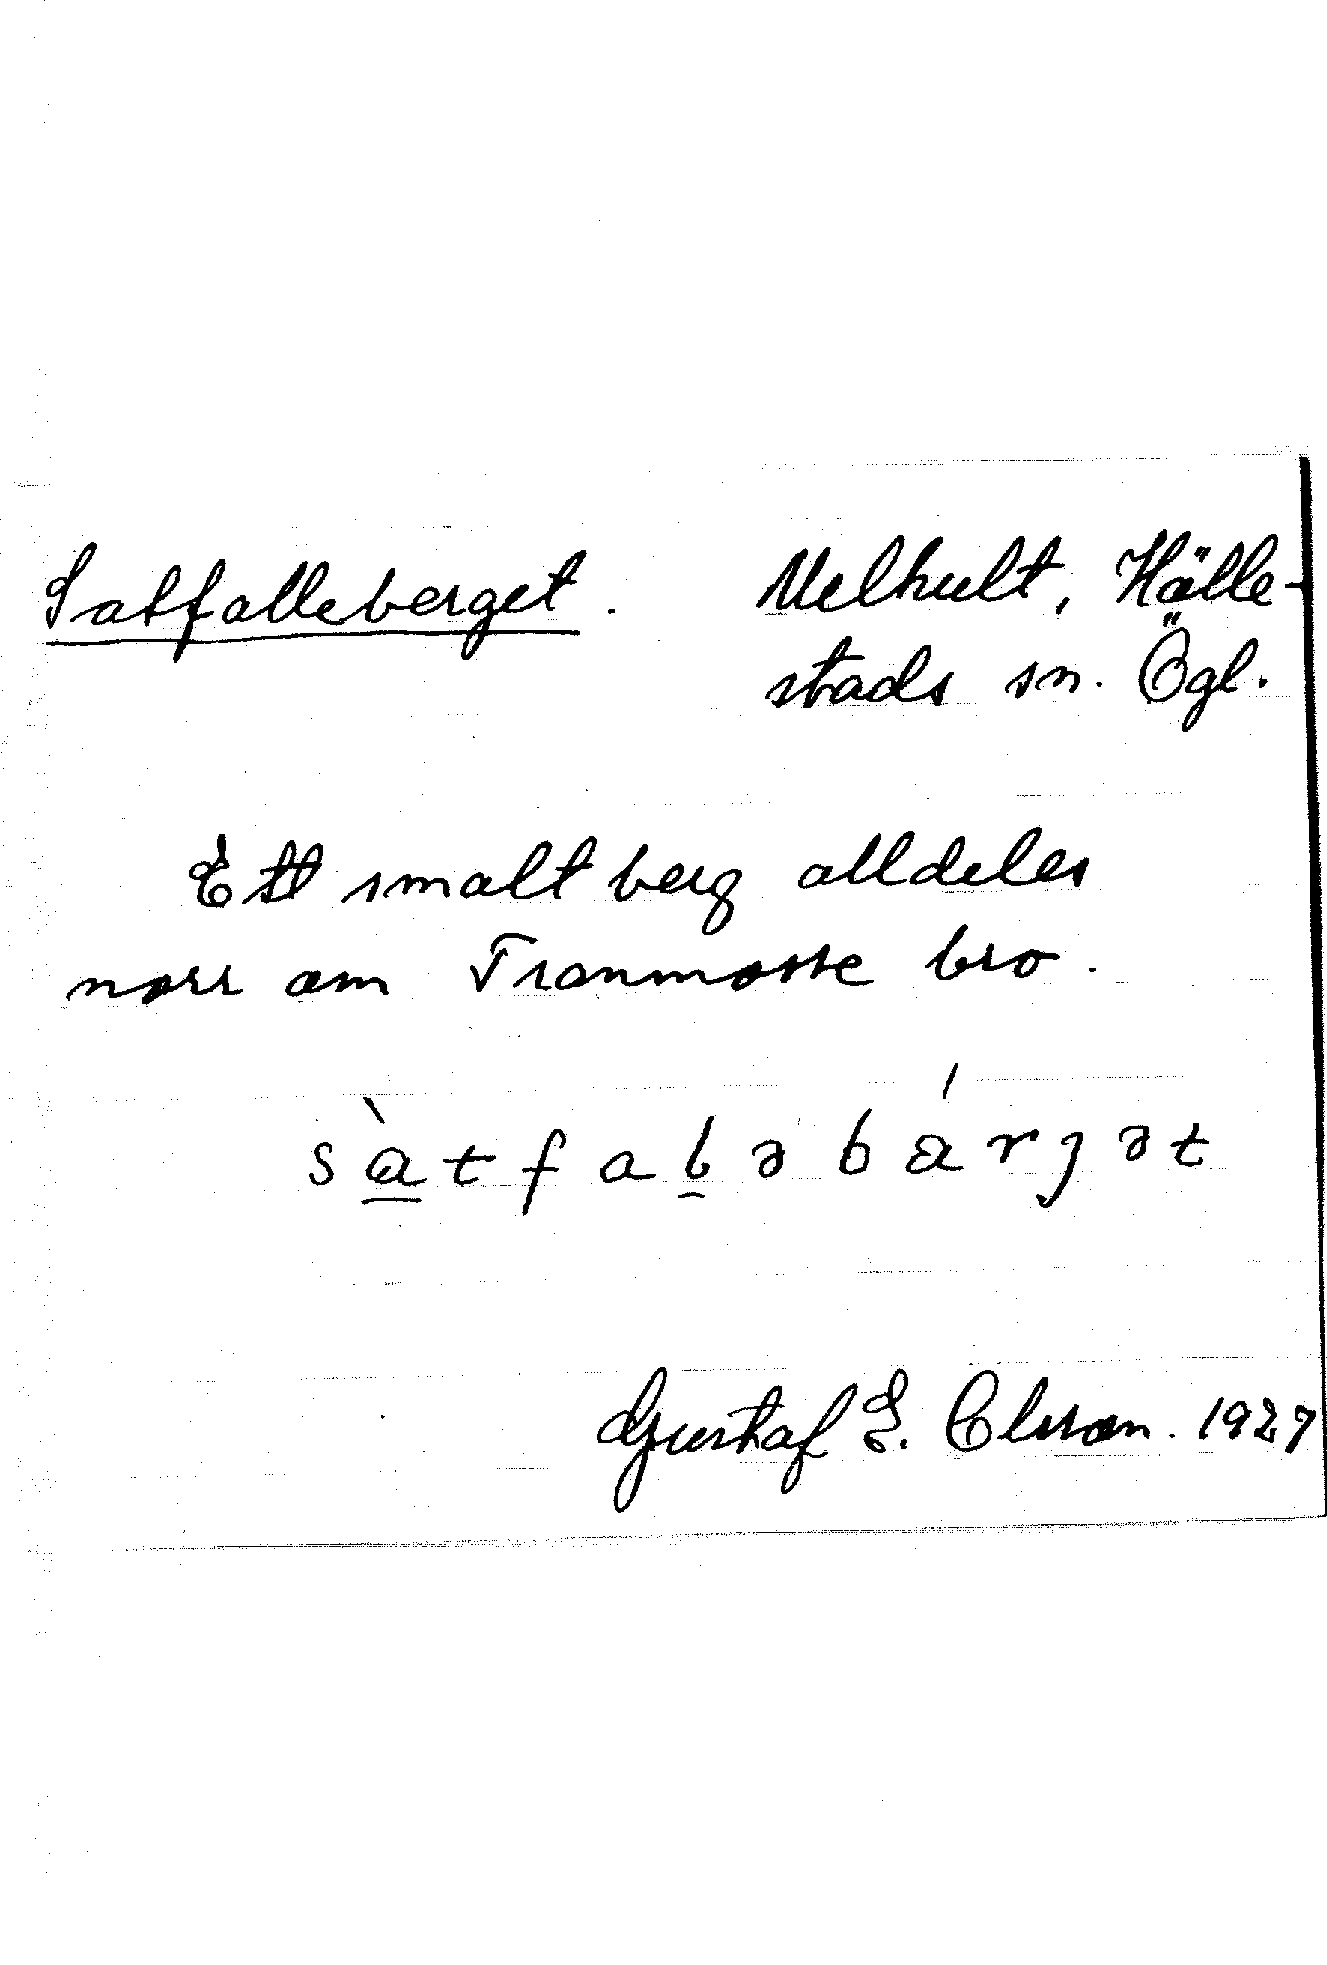 Satfalleberget. Melhult, Hälle-
stads sn. Ögl.
Ett smalt berg alldeles
norr om Tranmosse bro.
sàtfaləbárgət
Gustaf E. Olsson. 1927